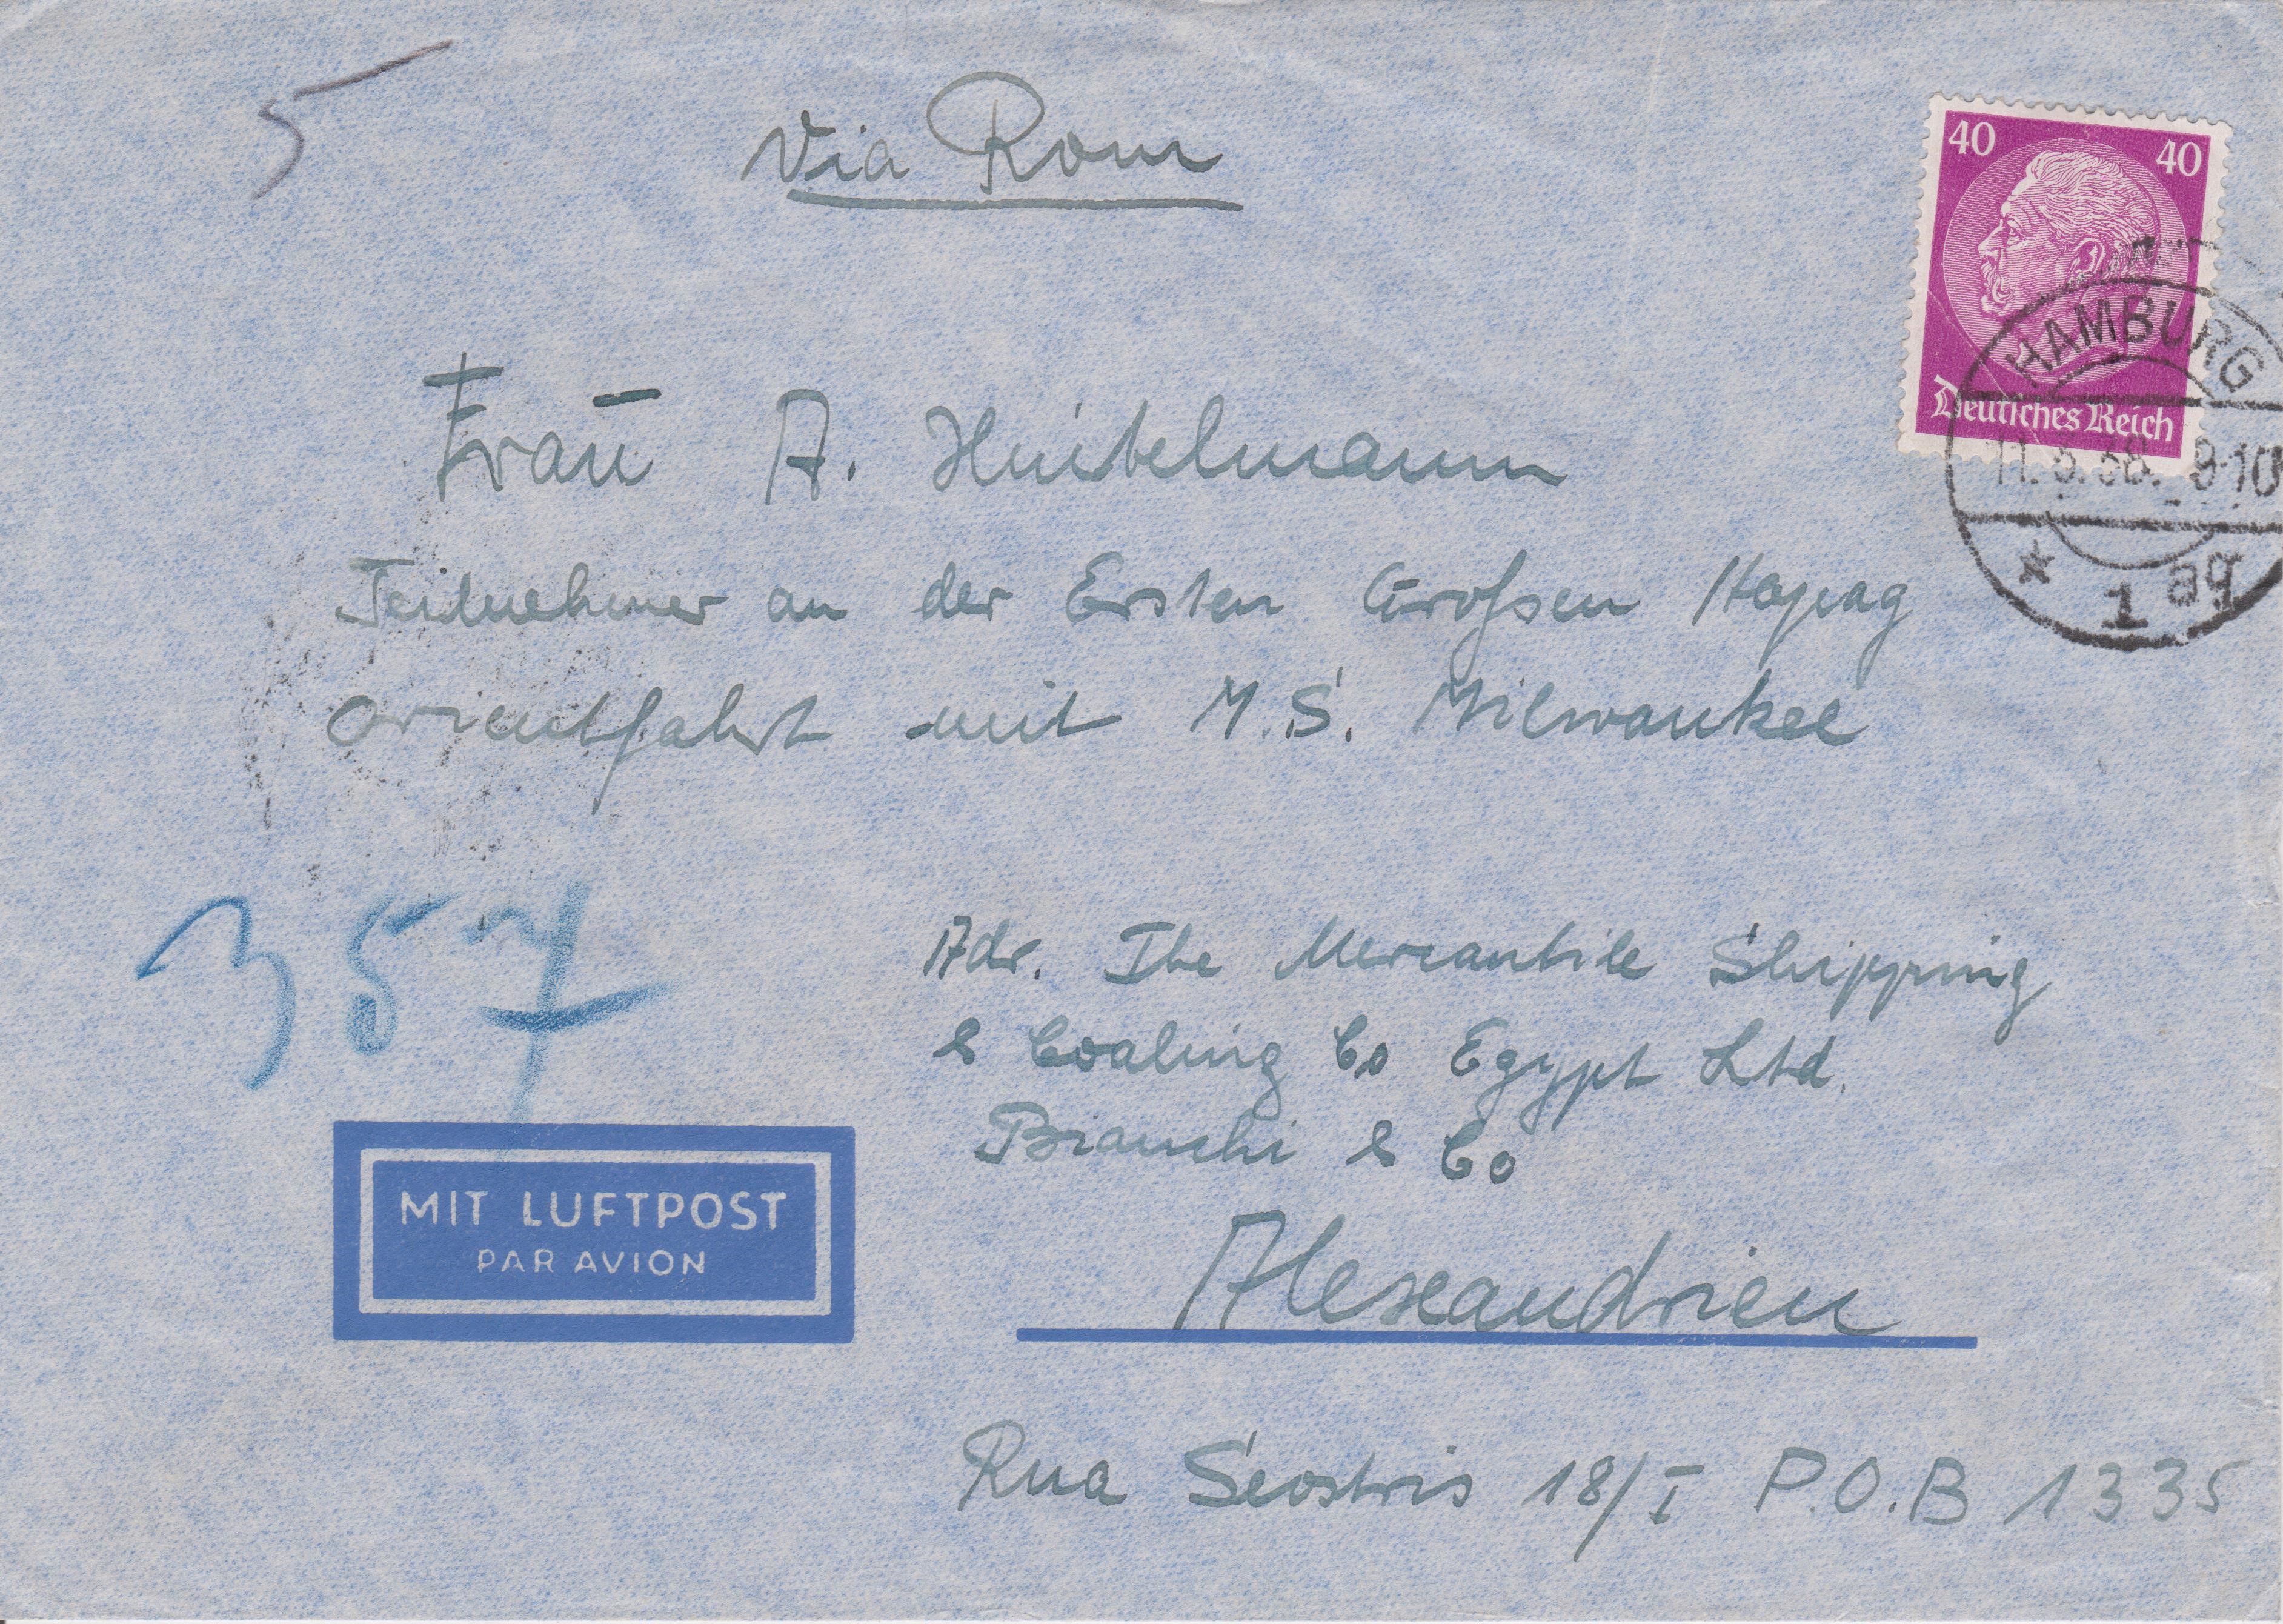 5
Via Rom
40 40
Deutsches Reich
HAMBURG
11.3.38. 9-10
* 1 ag
Frau A.
Teilnehmer an der Ersten Großen Hapag
Orientfahrt mit M.S. Milwaukee
357
Adr. The Mercantile Shipping
& Coaling Co Egypt Ltd.
Bianchi & Co
MIT LUFTPOST
PAR AVION
Alexandrien
Rua Seostris 18/I P.O.B 1335